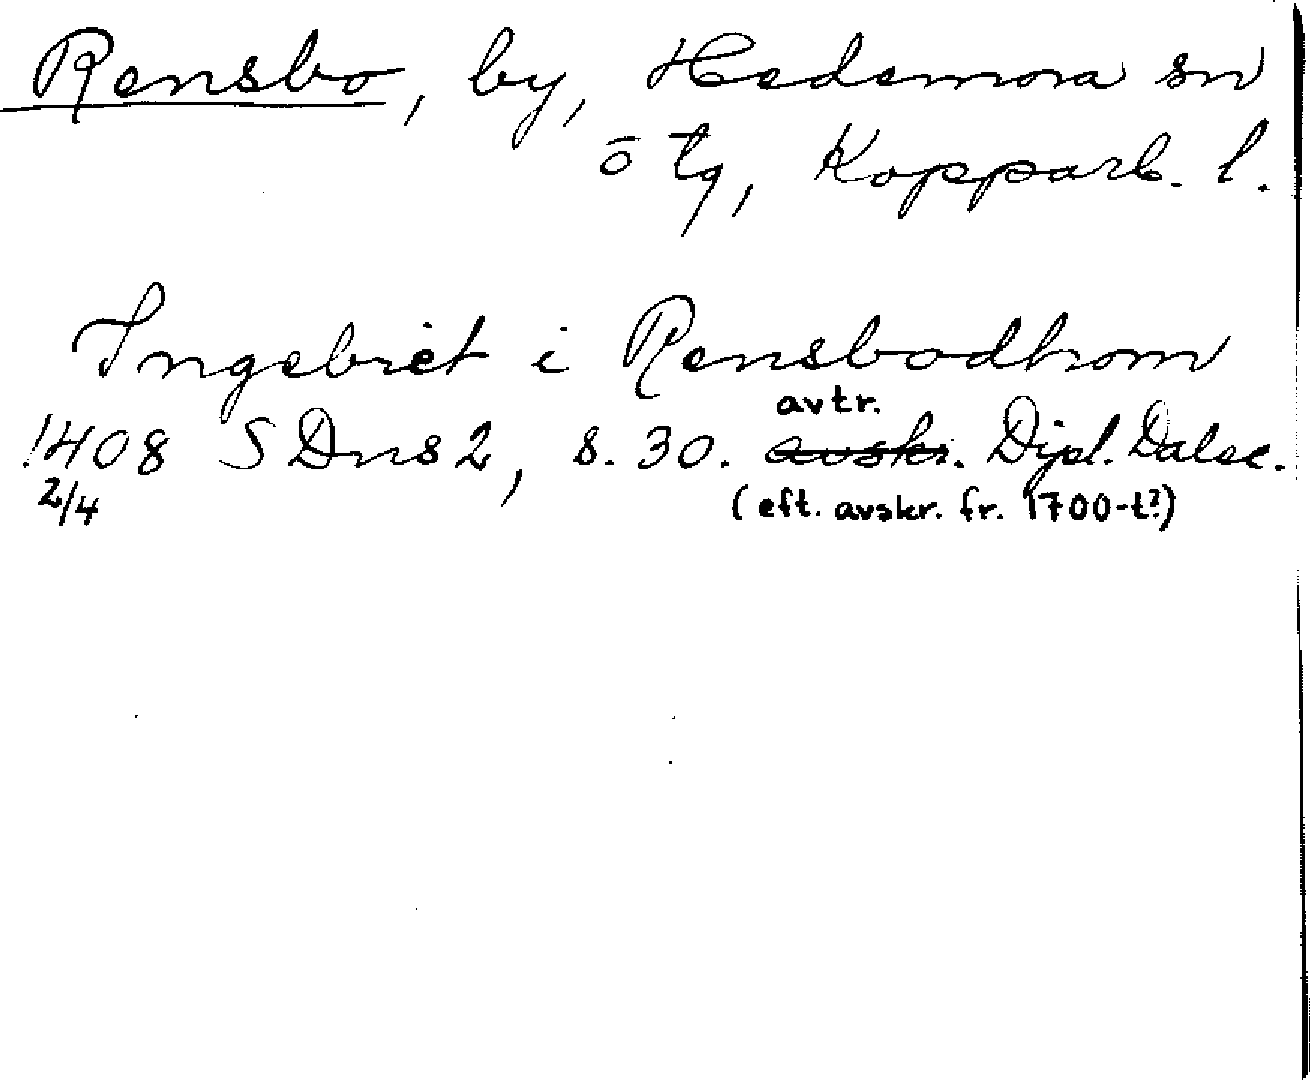 Rensbo, by, Hedemora sn
ö tg, Kopparb. l.
Ingebiet i Rensbodhom
avtr.
1408 SDns 2, s. 30. avskr. Dipl. Dalec.
2/4
(eft. avskr. fr. 1700-t?)